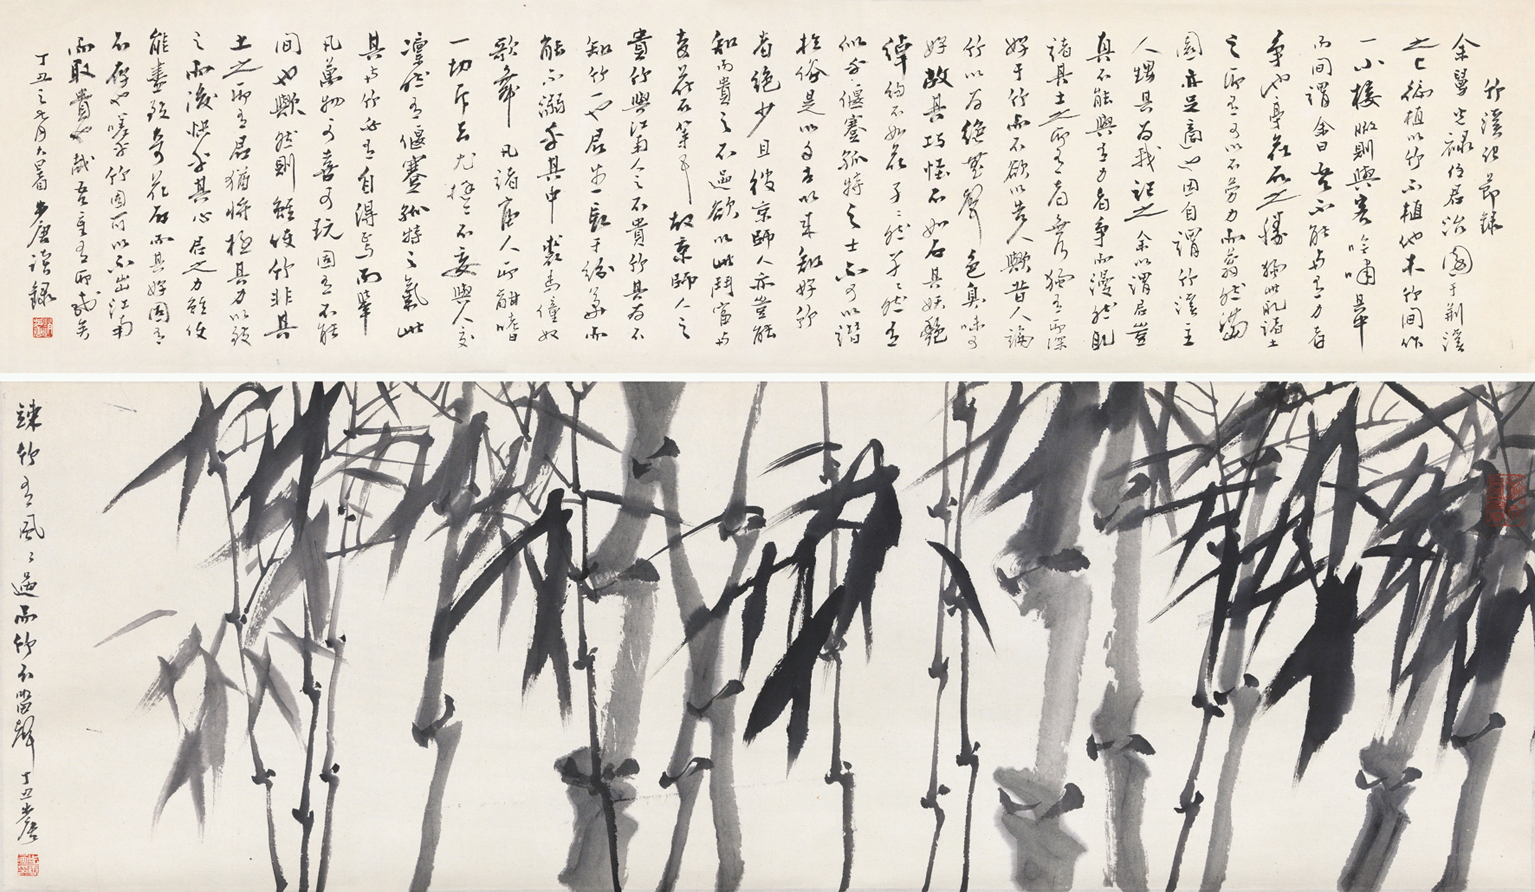 竹溪記節錄
余舅光祿任君治園于荊溪
之上徧植以竹不植他木竹間作
一小樓暇則與客吟嘯其中
而間謂余曰吾不能与有力者
爭池亭花石之勝獨此取諸土
之所有可以不勞力而蓊然滿
園亦足適也因自謂竹溪主
人甥其为我記之余以謂君豈
真不能與有力者爭而漫然取
諸其土之所有者無乃獨有所深
好于竹而不欲以告人歟昔人論
竹以为絕無聲色臭味可
好故其巧怪不如石其妖艷
綽約不如花孑孑然孑孑然有
似乎偃蹇孤特之士不可以諧
於俗是以自古以來知好竹
者絕少且彼京師人亦豈能
知而貴之不過欲以此鬥富与
奇花石等耳故京師人之
貴竹與江南人之不貴竹其为不
知竹一也君生長于紛華而
能不溺乎其中裘馬僮奴
歌舞凡諸富人所酣嗜
一切斥去尤挺挺不妄與人交
凜然有偃蹇孤特之氣此
其於竹必有自得焉而舉
凡萬物可喜可玩固有不能
間也歟然則雖使竹非其
土之所有君猶將極其力以致
之而後快乎其心君之力雖使
能盡致奇花石而其好固有
不存也嗟乎竹固可以不出江南
而取貴也哉吾重有所感矣
丁丑之六月大暑
疎竹有風風過而竹不留聲丁丑